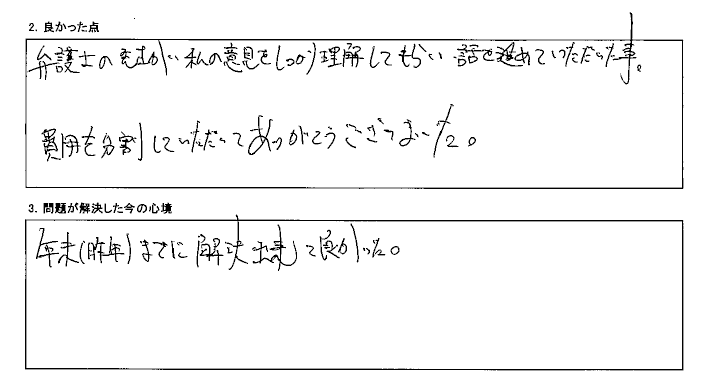 2. 良かった点
弁護士の先生が私の意見をしっかり理解してもらい 話を進めていただいた事。
費用を分割していただいてありがとうございました。
3. 問題が解決した今の心境
年末(昨年)までに解決出来て良かった。